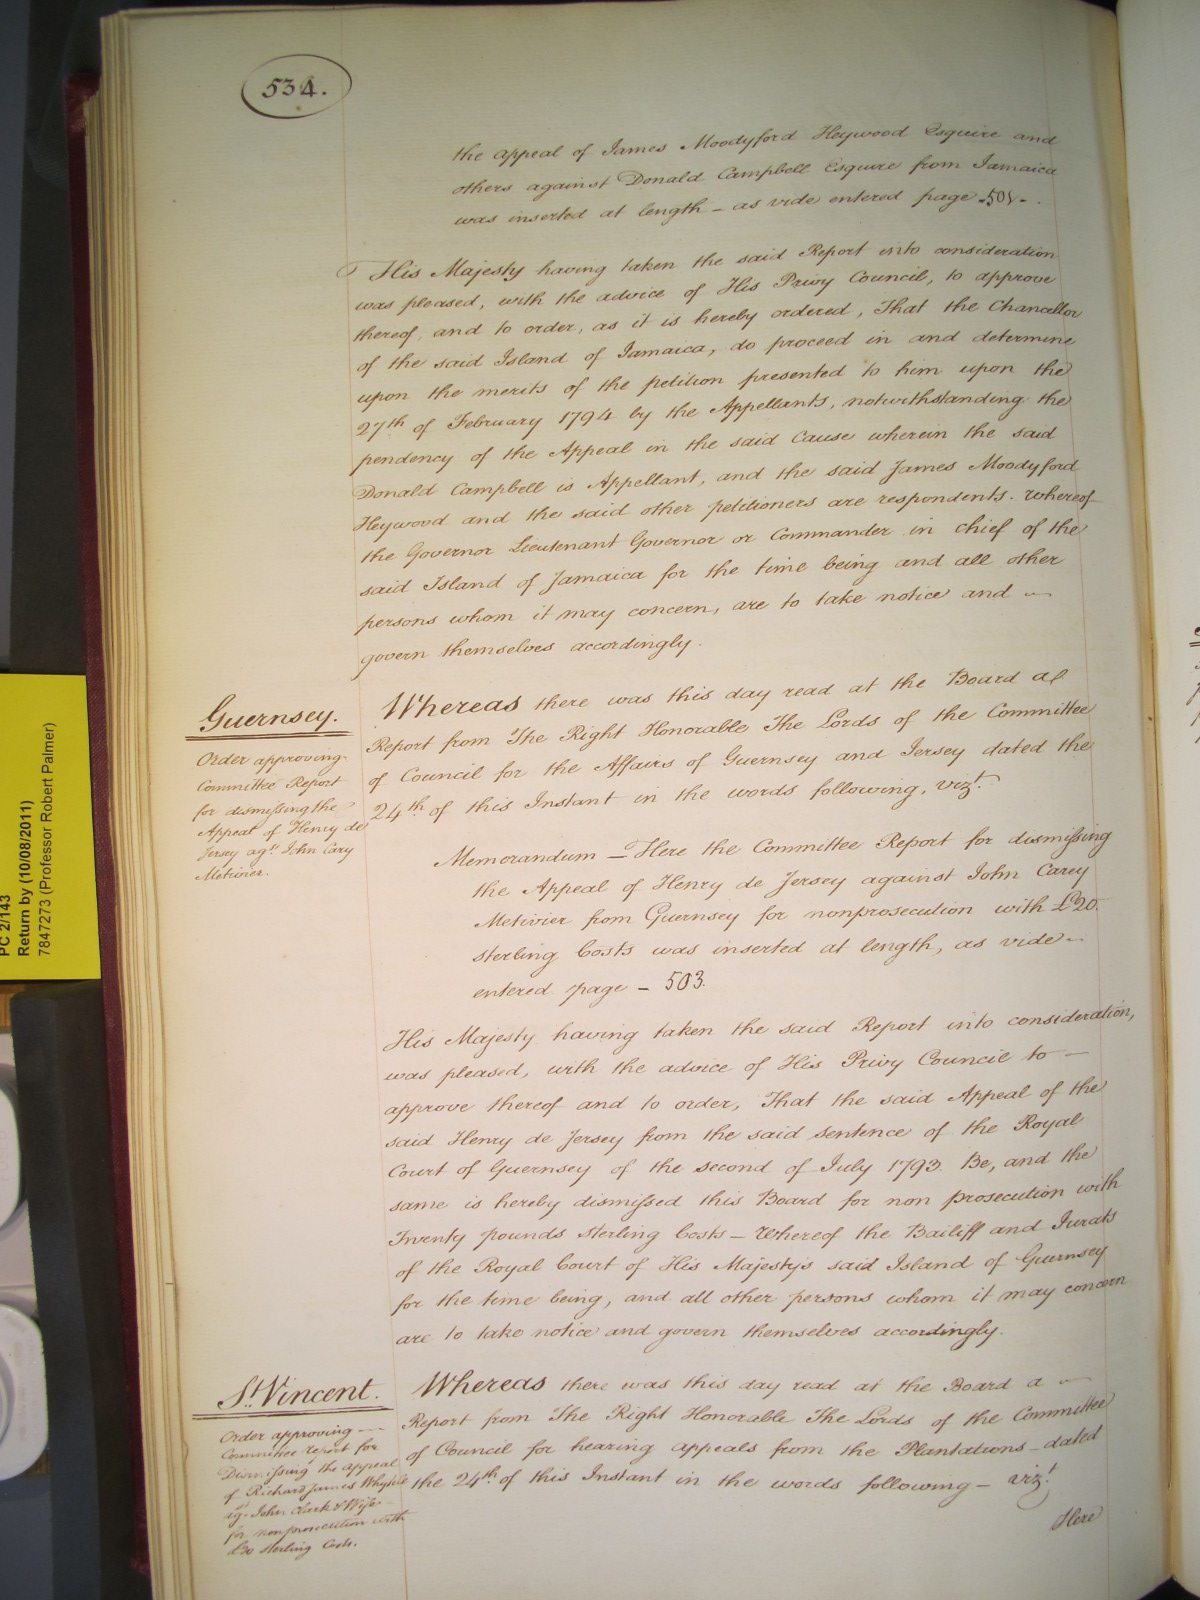 534.
the appeal of James Moodyford Heywood Esquire and
others against Donald Campbell Esquire from Jamaica
was inserted at length – as vide entered page - 501 - .
His Majesty having taken the said Report into consideration
was pleased, with the advice of His Privy Council, to approve
thereof, and to order, as it is hereby ordered, That the Chancellor
of the said Island of Jamaica, do proceed in and determine
upon the merits of the petition presented to him upon the
27th of February 1794 by the Appellants, notwithstanding the
pendency of the Appeal in the said Cause wherein the said
Donald Campbell is Appellant, and the said James Moodyford
Heywood and the said other petitioners are respondents. Whereof
the Governor Lieutenant Governor or Commander in chief of the
said Island of Jamaica for the time being and all other
persons whom it may concern, are to take notice and ~
govern themselves accordingly.
Guernsey.
Order approving
Committee Report
for dismissing the
Appeal of Henry de
Jersey agst. John Cary
Metivier.
Whereas there was this day read at the Board a
Report from The Right Honorable The Lords of the Committee
of Council for the Affairs of Guernsey and Jersey dated the
24th. of this Instant in the words following, vizt.
Memorandum – Here the Committee Report for dismissing
the Appeal of Henry de Jersey against John Carey
Metivier from Guernsey for nonprosecution with £20.
sterling Costs was inserted at length, as vide ~
entered page – 503.
His Majesty having taken the said Report into consideration,
was pleased, with the advice of His Privy Council to –
approve thereof and to order, That the said Appeal of the
said Henry de Jersey from the said Sentence of the Royal
Court of Guernsey of the second of July 1793. Be, and the
same is hereby dismissed this Board for non prosecution with
Twenty pounds sterling Costs – Whereof the Bailiff and Jurats
of the Royal Court of His Majesty's said Island of Guernsey
for the time being, and all other persons whom it may concern
are to take notice and govern themselves accordingly.
St. Vincent.
Order approving –
Committee report for
Dismissing the appeal
of Richard James
agt. John Clark & Wife
for nonprosecution with
sterling Costs.
Whereas there was this day read at the Board a ~
Report from The Right Honorable The Lords of the Committee
of Council for hearing appeals from the Plantations – dated
the 24th. of this Instant in the words following – vizt.
Here
PC 2/143
Return by (10/08/2011)
7847273 (Professor Robert Palmer)